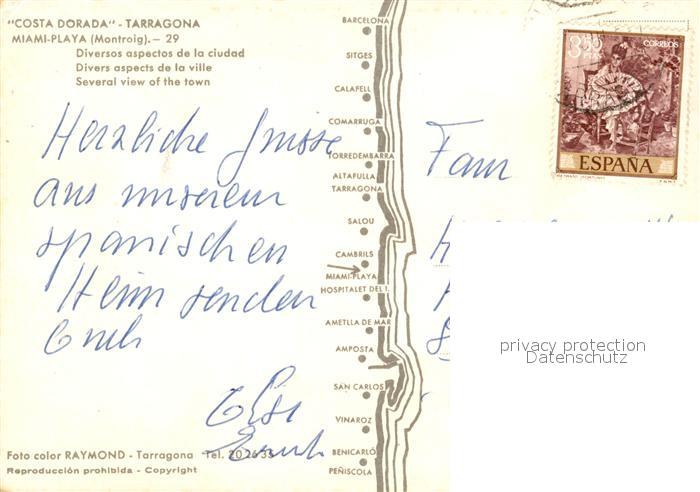 "COSTA DORADA" - TARRAGONA
MIAMI-PLAYA (Montroig). - 29
Diversos aspectos de la ciudad
Divers aspects de la ville
Several view of the town
Herzliche Grüsse
aus unserem
spanischen
Heim senden
Euch
Else
BARCELONA
SITGES
CALAFELL
COMARRUGA
TORREDEMBARRA
ALTAFULLA
TARRAGONA
SALOU
CAMBRILS
MIAMI-PLAYA
HOSPITALET DEL I.
AMETLLA DE MAR
AMPOSTA
SAN CARLOS
VINAROZ
BENICARLÓ
PEÑISCOLA
Foto color RAYMOND - Tarragona Tel. 20 26 35
Reproducción prohibida - Copyright
3'50 CORREOS
ESPAÑA
Fam
privacy protection
Datenschutz